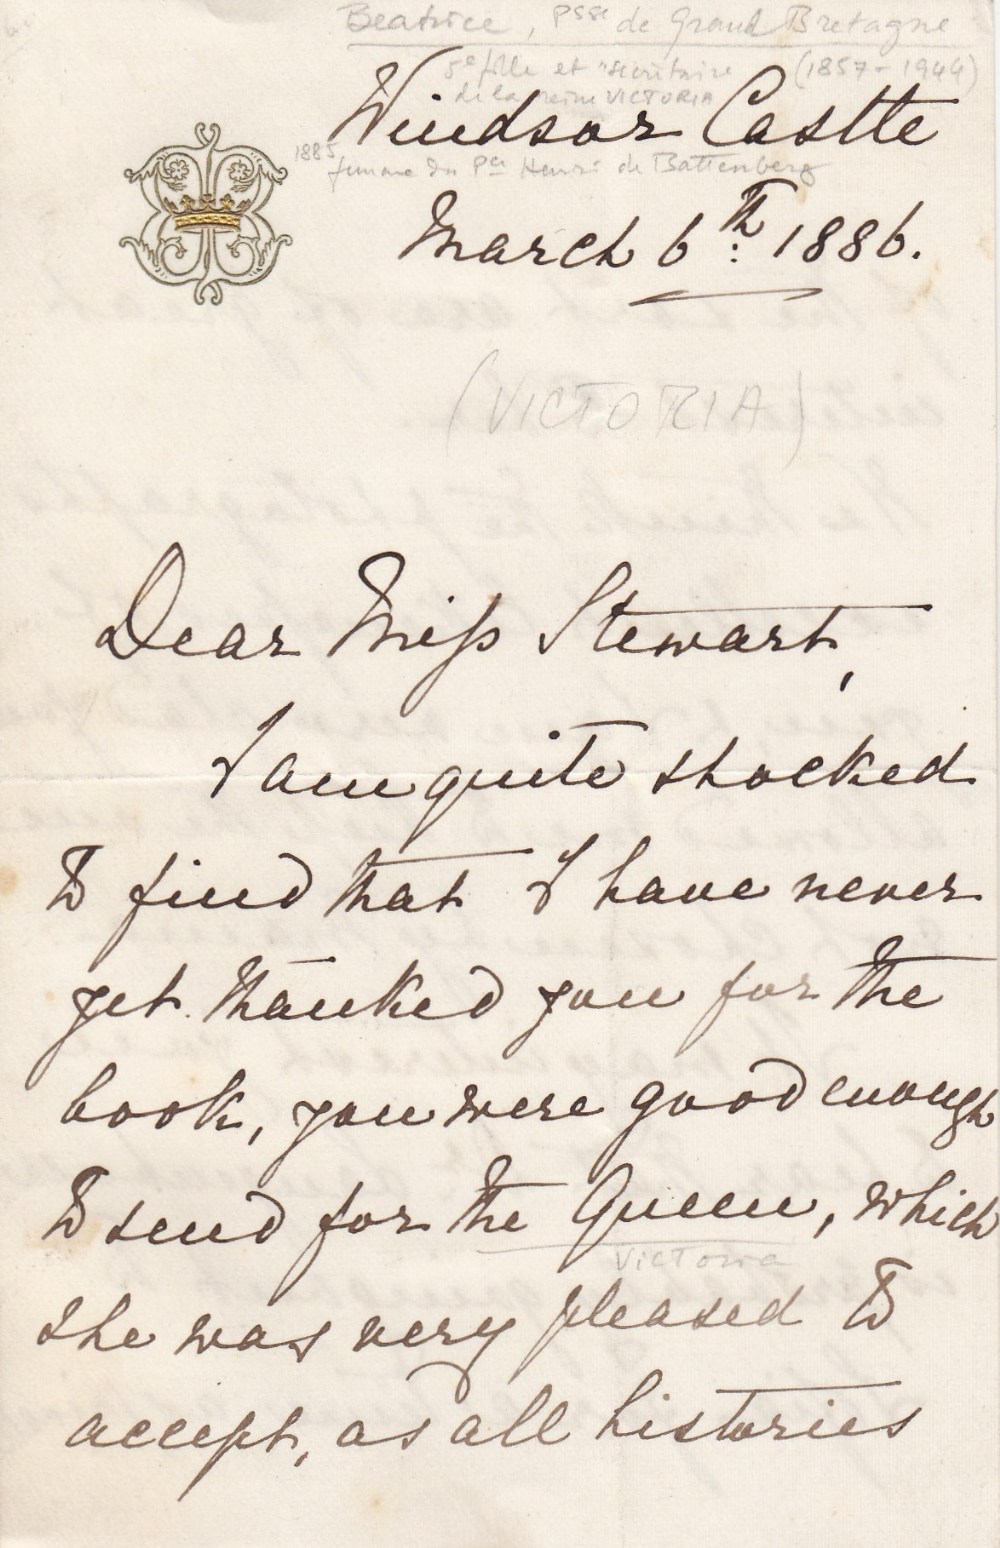 Beatrice, Psse de Grand Bretagne
5e fille et secrétaire (1857-1944)
de la reine VICTORIA
Windsor Castle
1885 femme du Pce Henri de Battenberg
March 6th: 1886.
(VICTORIA)
Dear Miss Stewart,
I am quite shocked
to find that I have never
yet thanked you for the
book, you were good enough
to send for the Queen, which
Victoria
she was very pleased to
accept, as all histories